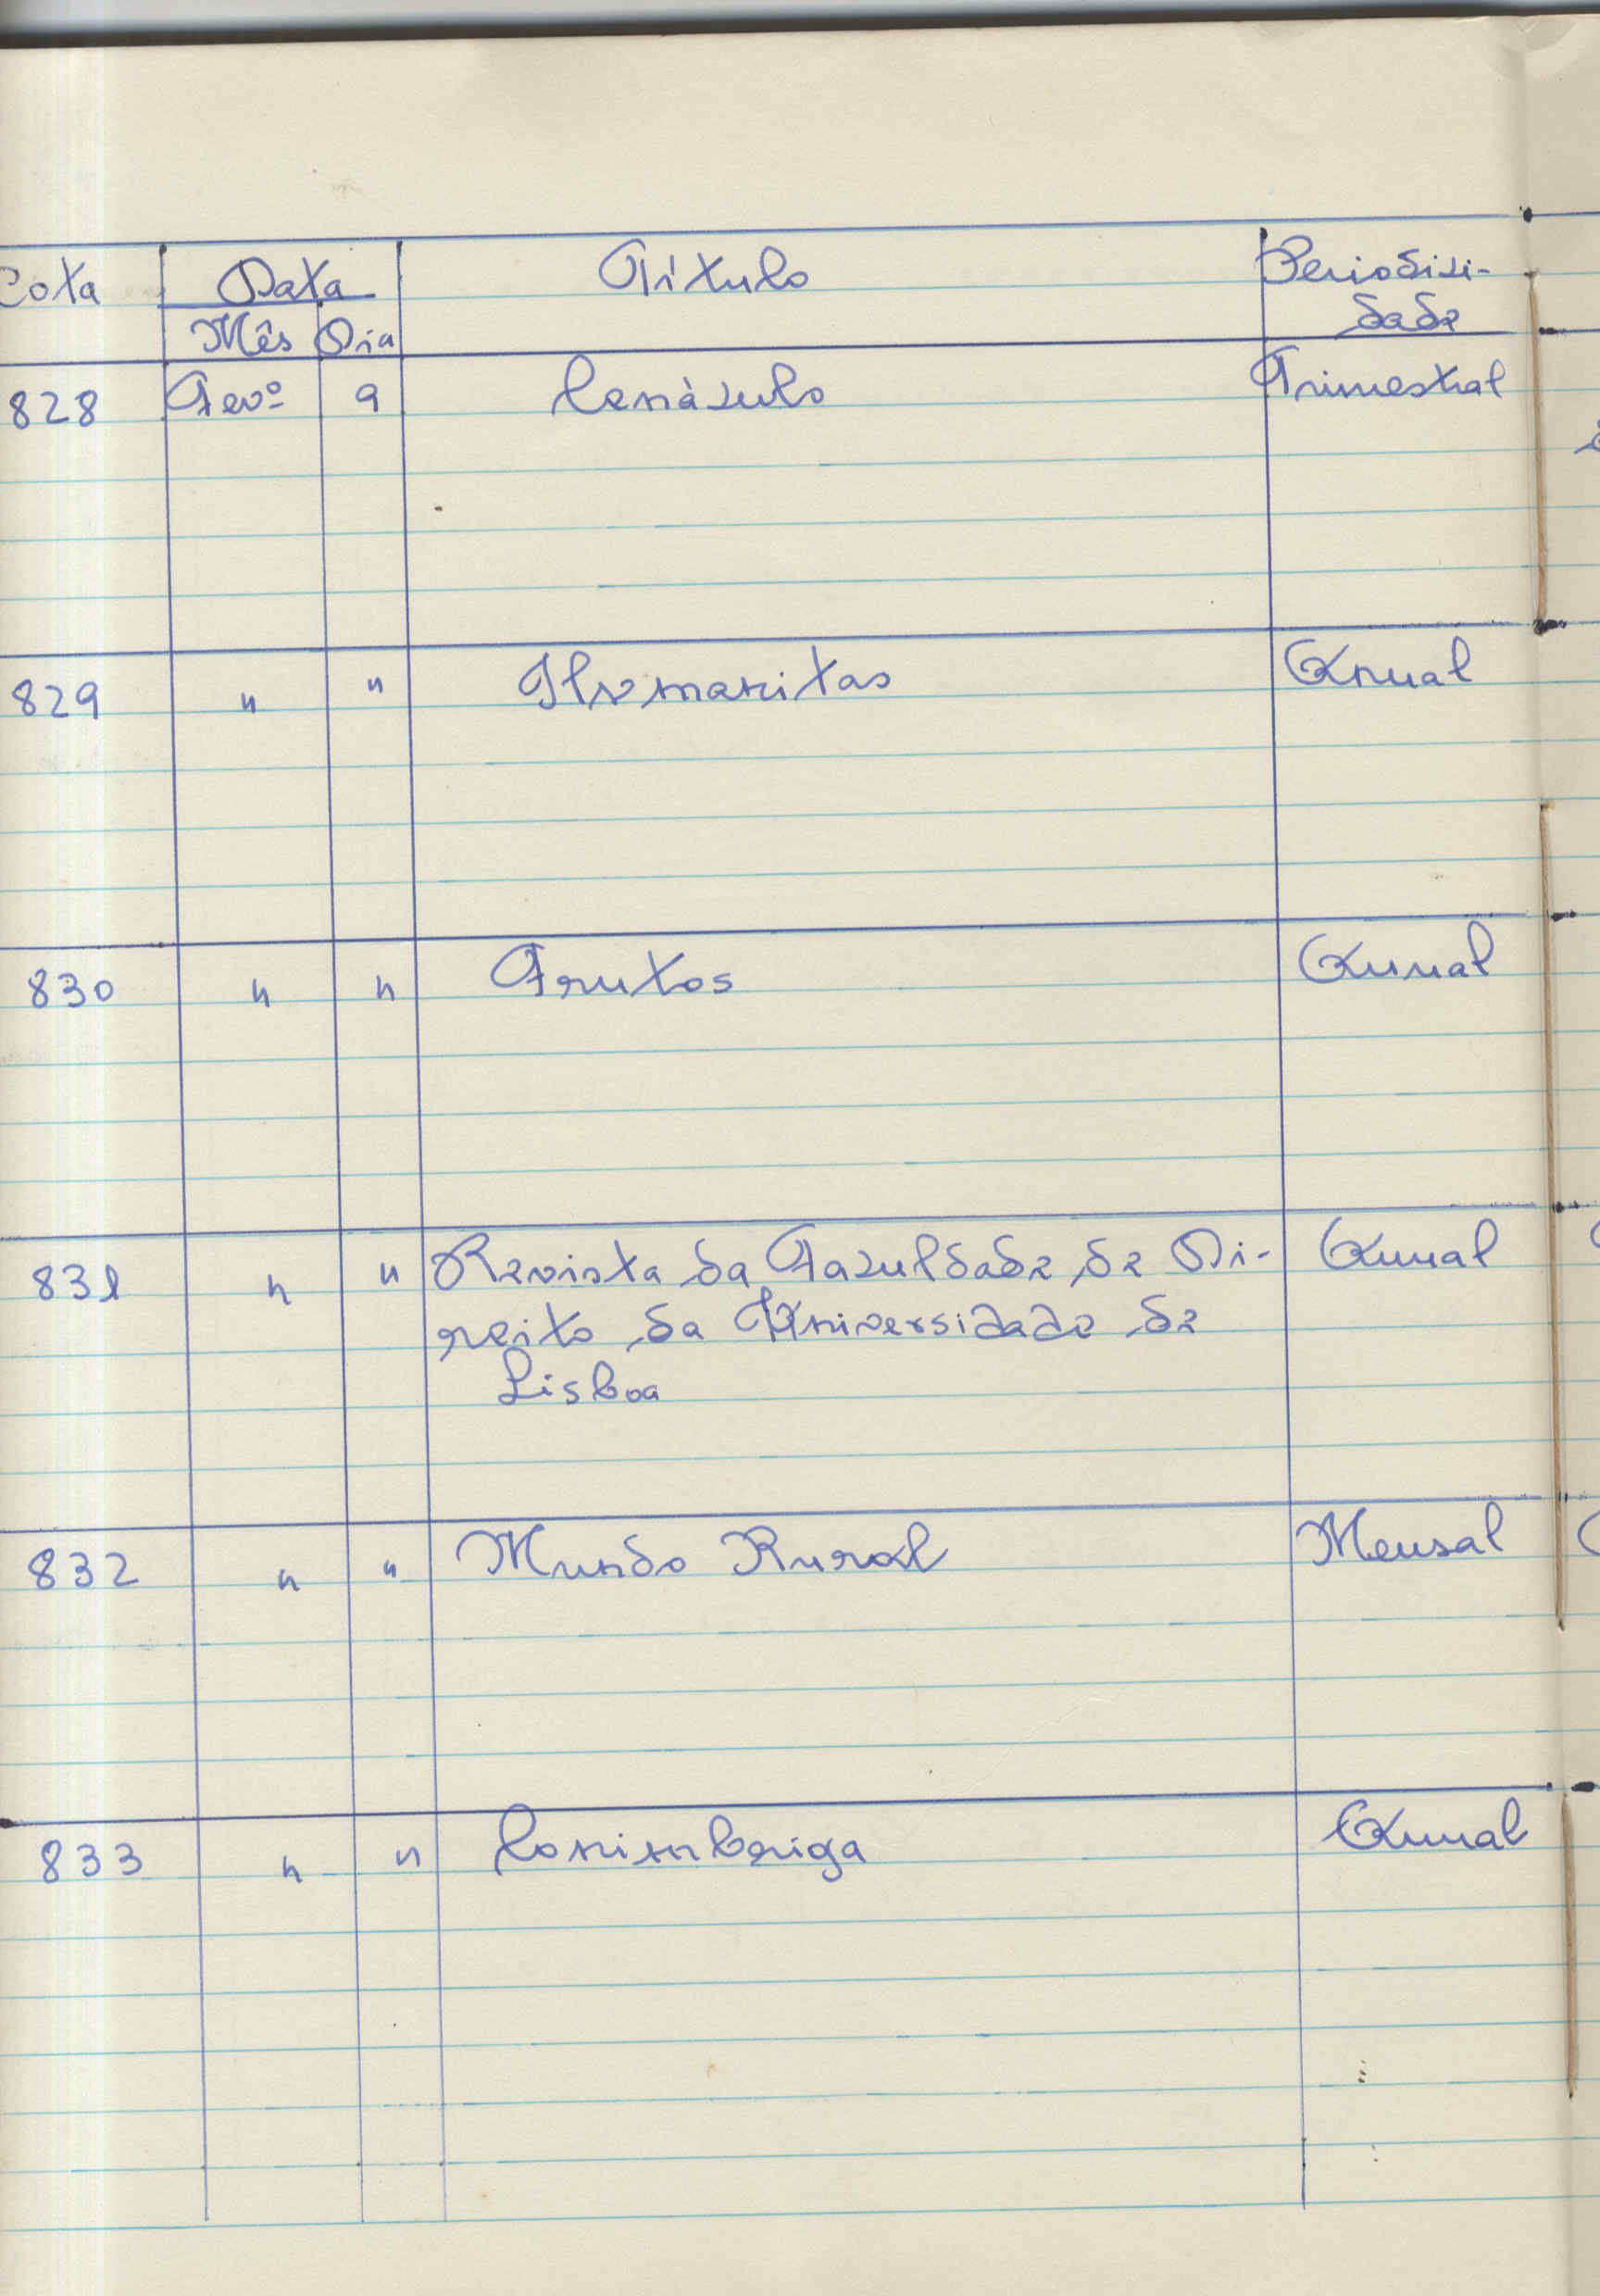 Cota Data Título Periodici-
Mês Dia dade
828 Fevº 9 Cenáculo Trimestral
829 " " Humanitas Anual
830 " " Frutos Anual
831 " " Revista da Faculdade de Di- Anual
reito da Universidade de
Lisboa
832 " " Mundo Rural Mensal
833 " " Conimbriga Anual